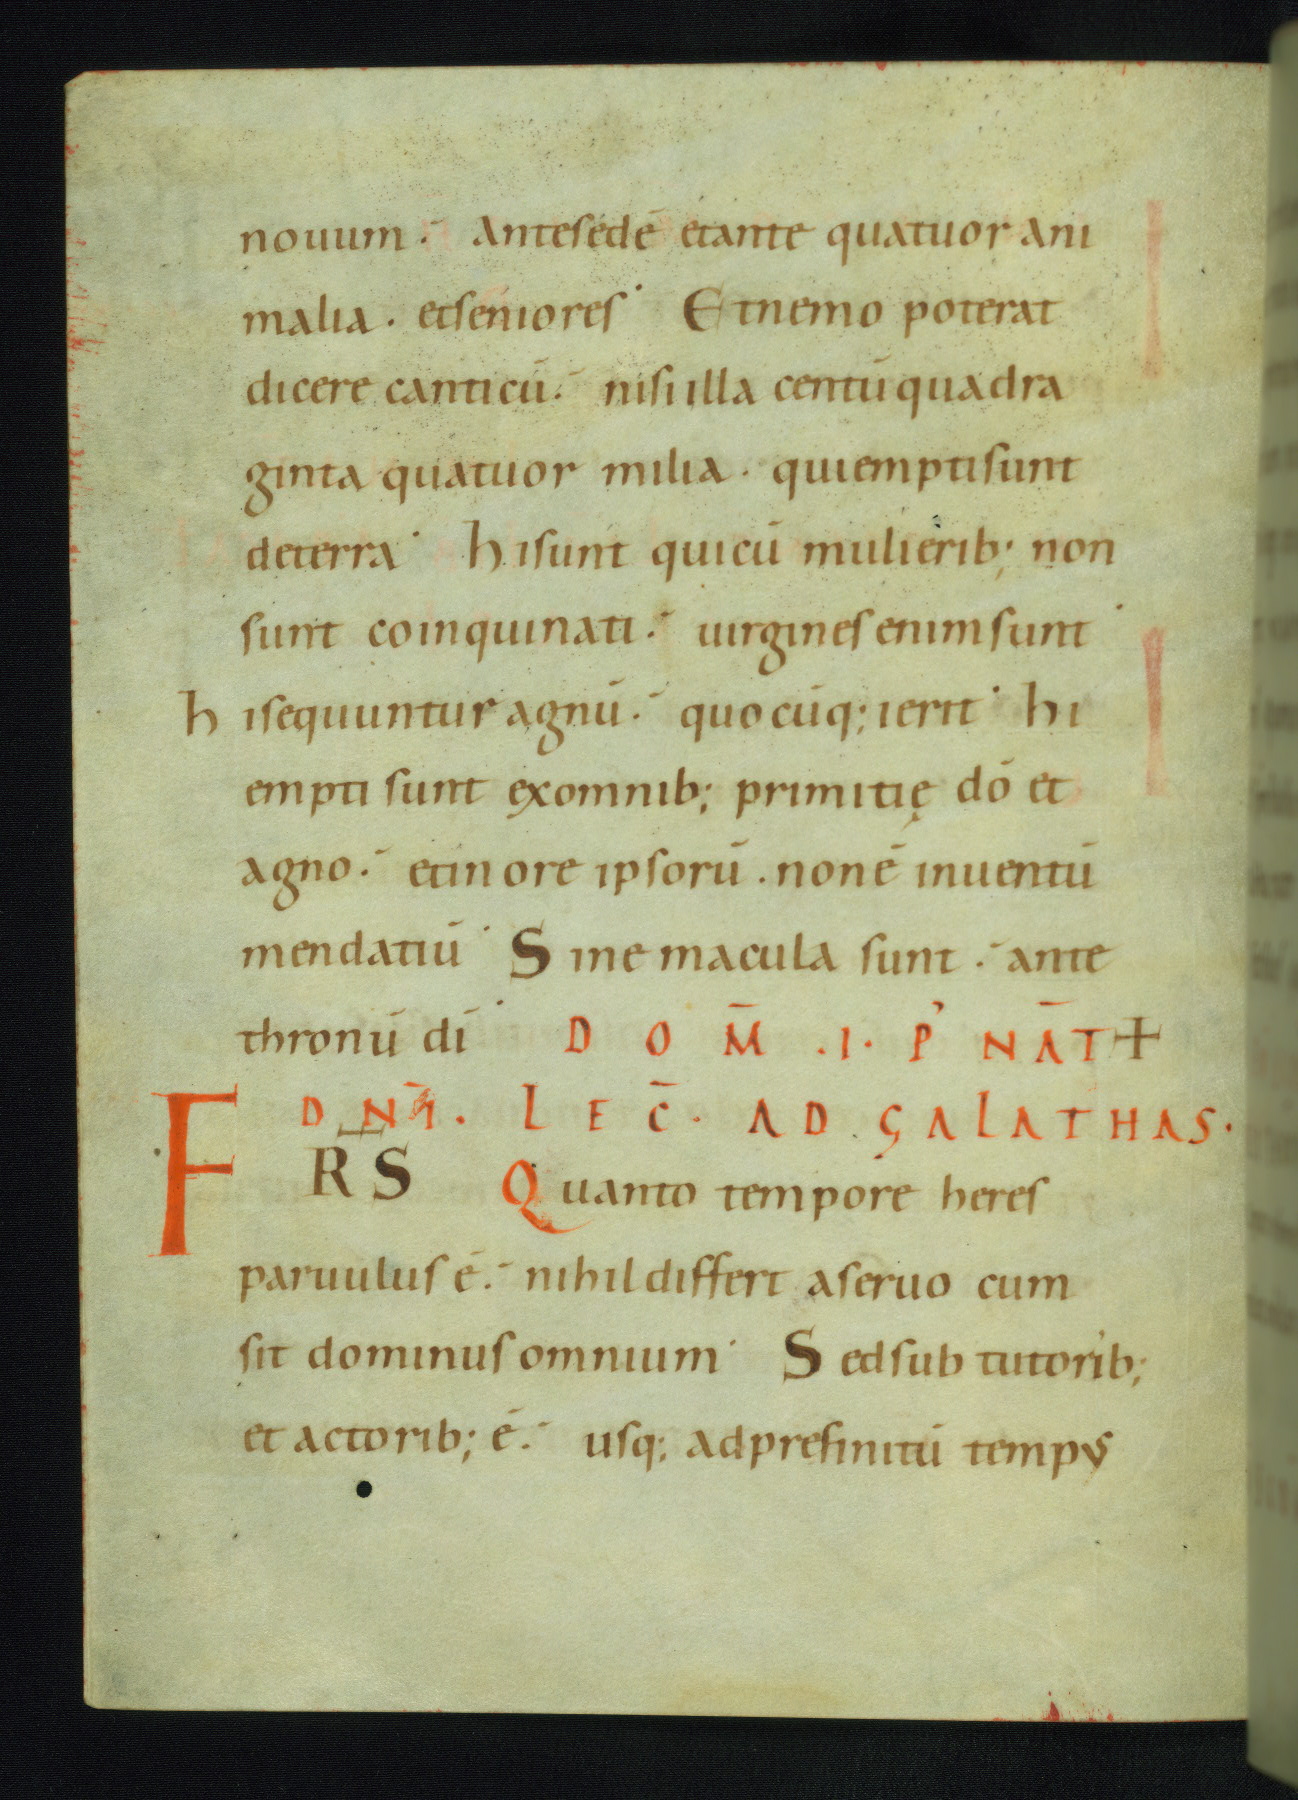 novum. Ante sedē et ante quatuor ani
malia. et seniores. Et nemo poterat
dicere canticū. nisi illa centū quadra
ginta quatuor milia. qui empti sunt
de terra. Hi sunt qui cū mulierib; non
sunt coinquinati. uirgines enim sunt.
hi sequuntur agnū. quocūq; ierit. hi
empti sunt ex omnib; primitię dō et
agno. et in ore ipsorū. non ē inuentū
mendatiū. Sine macula sunt. ante
thronū dī. DOM̄ .I. P' NĀT
DNĪ. LEC̄. AD GALATHAS.
FRS Quanto tempore heres
paruulus ē. nihil differt a seruo cum
sit dominus omnium. Sed sub tutorib;
et actorib; ē. usq; ad prefinitū tempus